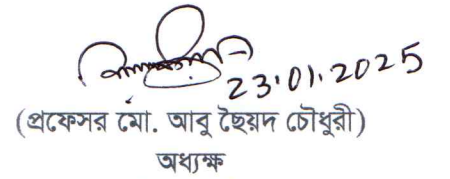 23.01.2025
(প্রফেসর মো. আবু ছৈয়দ চৌধুরী)
অধ্যক্ষ